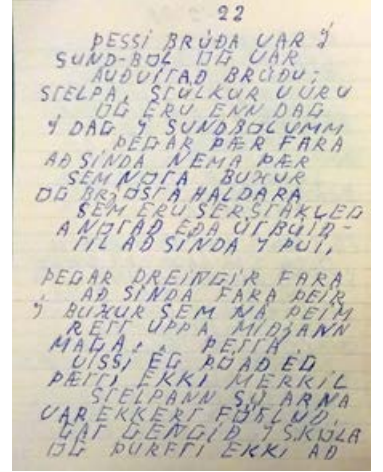 22
ÞESSI BRÚÐA VAR Ý
SUND-BOL OG VAR
AUÐVITAÐ BRÚÐU;
STELPA, STÚLKUR VÓRU
OG ERU ENN DAG
Ý DAG Ý SUNDBOLUMM
ÞEGAR ÞÆR FARA
AÐ SINDA NEMA ÞÆR
SEM NOTA BUXUR
OG BRJÓSTA HALDARA
SEM ERU SÉR STAKLEG
A NOTAÐ EÐA ÚTBUIÐ-
TIL AÐ SINDA Ý ÞVI,
ÞEGAR DREINGIR FARA
AÐ SINDA FARA ÞEIR
Ý BUXUR SEM NÁ ÞEIM
RETT UPPÁ MIÐJANN
MAGA, ÞETTA
VISSI ÉG ÞÓ AÐ ÉG
ÞÆTTI EKKI MERKIL
STELPANN SVARNA
VAR EKKERT FÖTLUÐ,
GAT GENGIÐ Ý SKÓLA
OG ÞURFTI EKKI AÐ